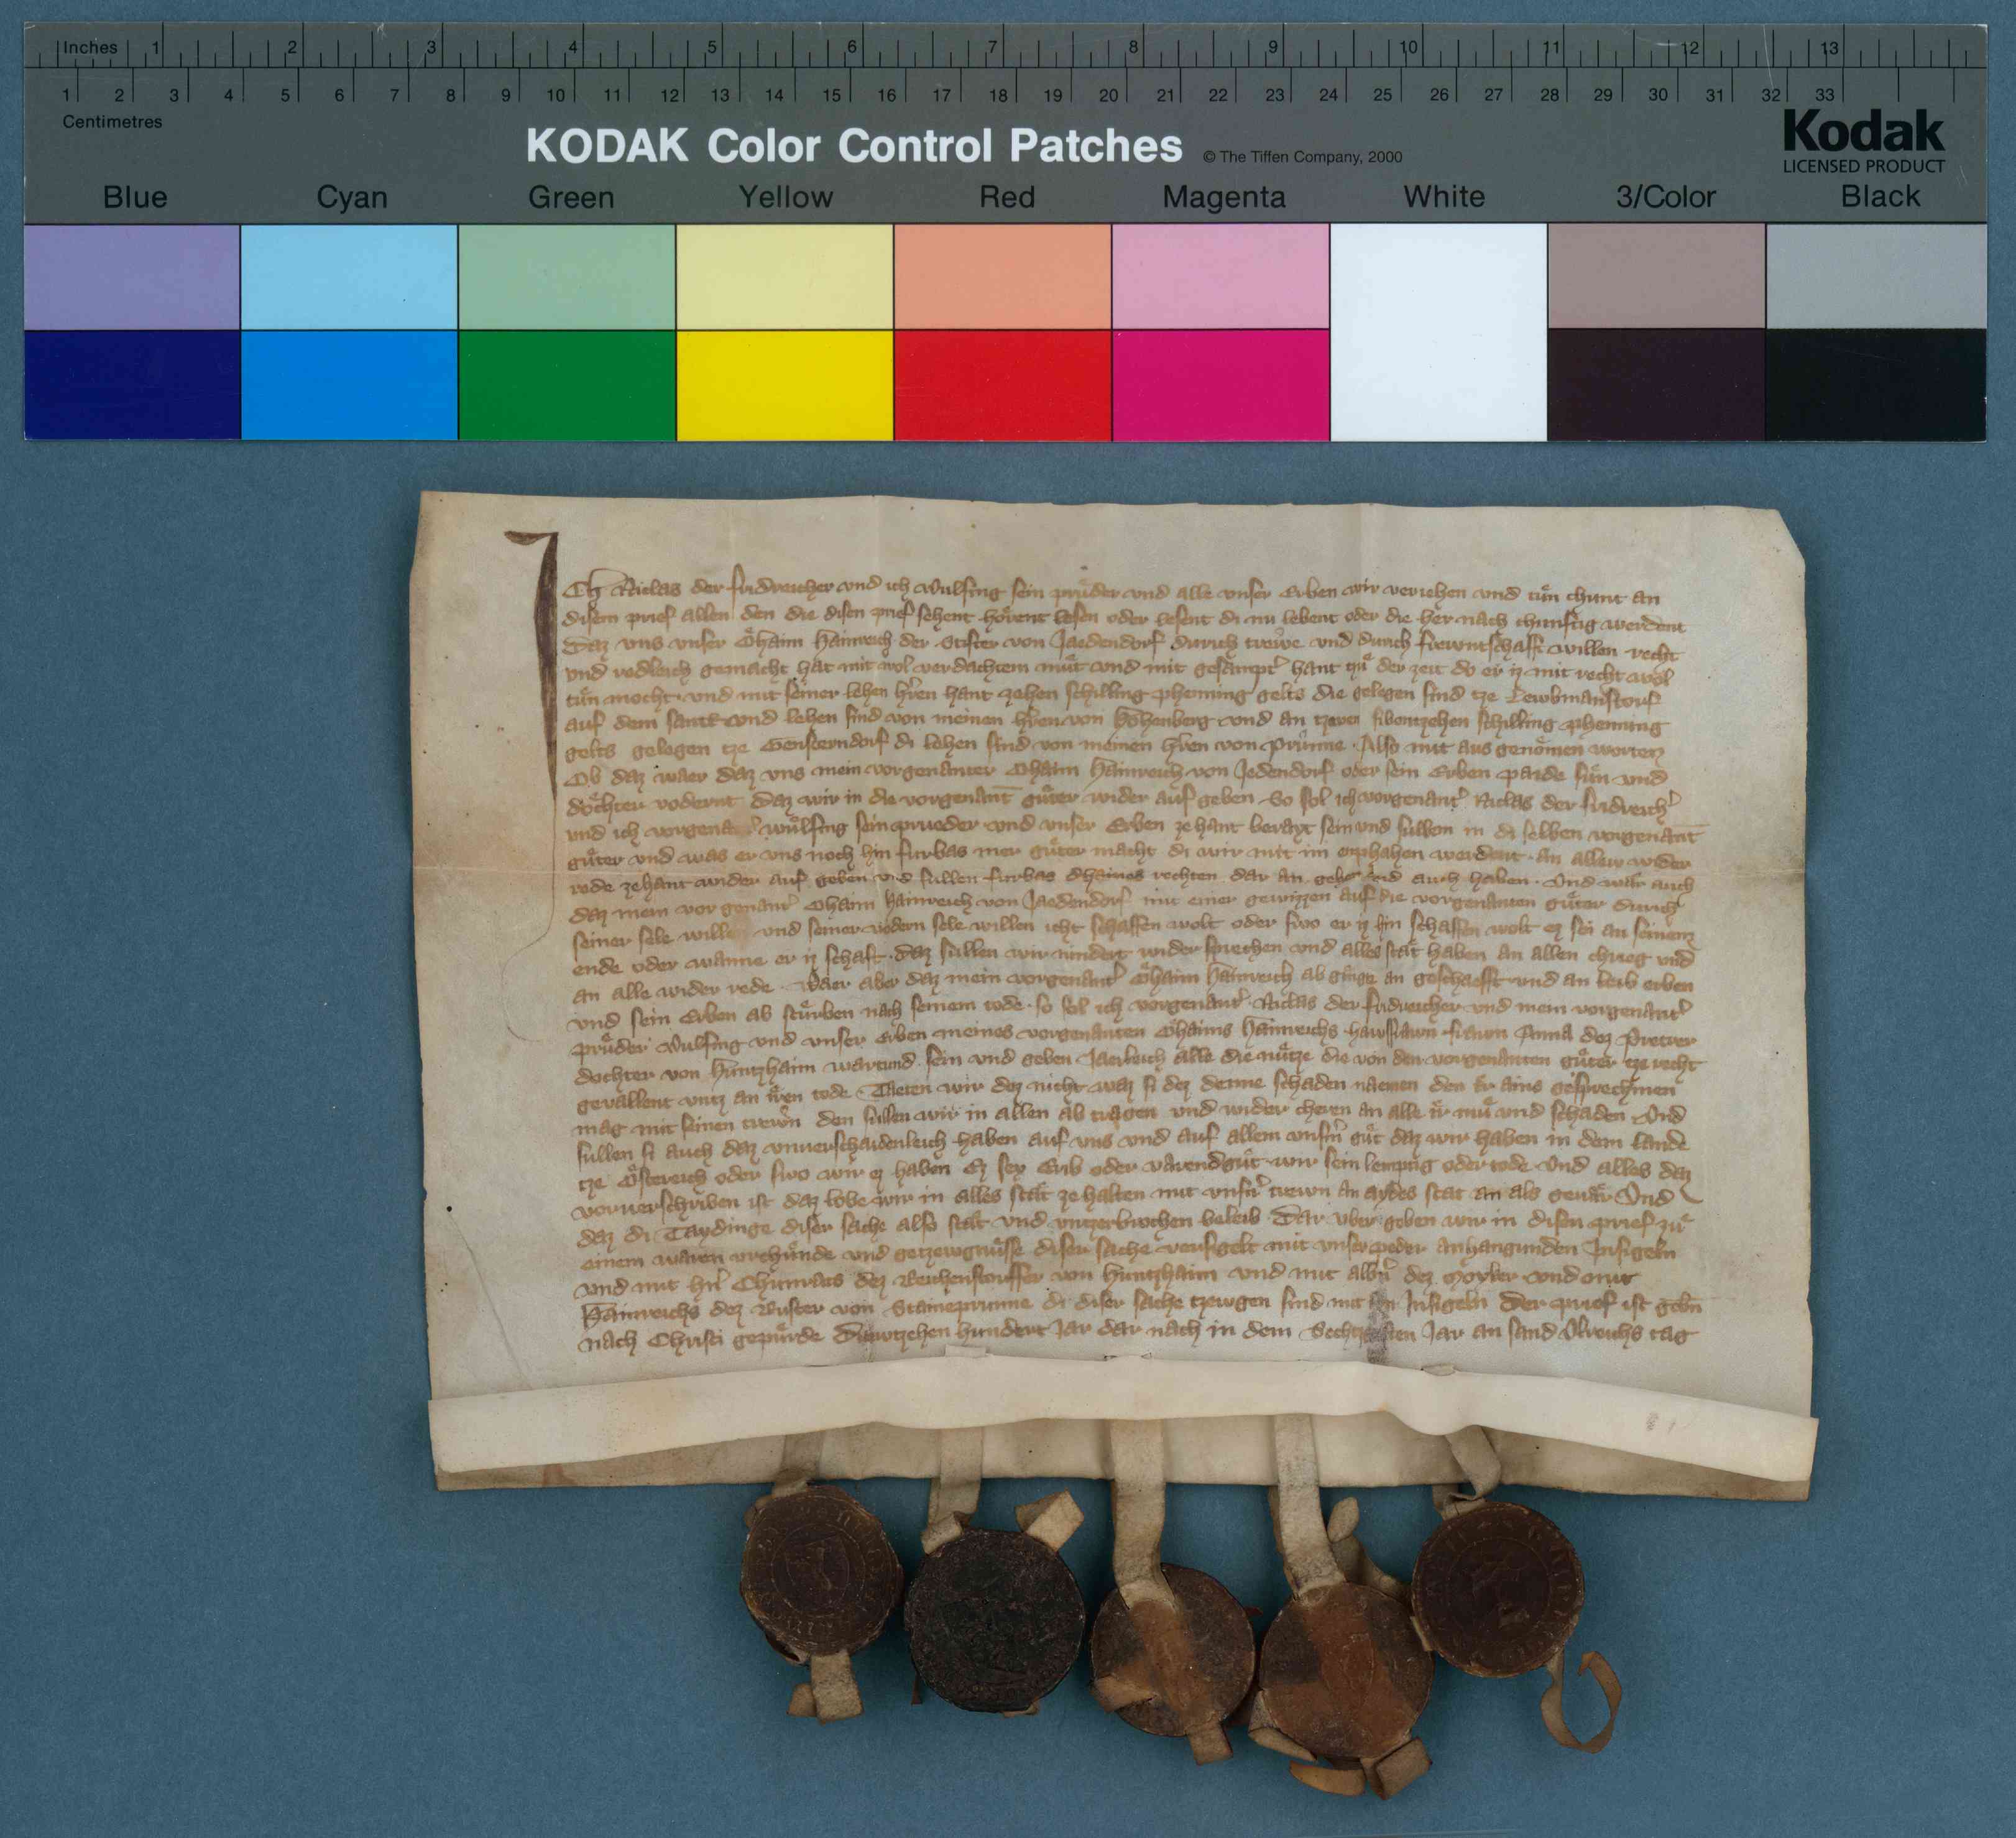 Inches 1 2 3 4 5 6 7 8 9 10 11 12 13
1 2 3 4 5 6 7 8 9 10 11 12 13 14 15 16 17 18 19 20 21 22 23 24 25 26 27 28 29 30 31 32 33
Centimetres
KODAK Color Control Patches © The Tiffen Company, 2000
Kodak
LICENSED PRODUCT
Blue Cyan Green Yellow Red Magenta White 3/Color Black
ICh Niclas der fridreicher vnd ich Wulfing sein průder vnd alle vnser Erben wir veriehen vnd tůn chunt an
disem prief allen den die disen prief sehent hörent lesen oder lesent di nu lebent oder die her nach chunftig werdent
Daz vns vnser Öhaim Hainreich der Stifter von Jaedendorf durich trewe vnd durich frewntschaft willen recht
vnd redleich gemacht hat mit wol verdachtem můt vnd mit gesampt' hant tzů der zeit do er iz mit recht wol
tůn mocht vnd mit seiner lehen h'ren hant zehen schilling phenning gelts die gelegen sind tze Lewbmanstorf
auf dem sante vnd lehen sind von meinen h'ren von Hohenberg vnd an tzwen sibentzehen schilling phenning
gelts gelegen tze Gensterndorf di lehen sind von meinen h'ren von prunne Also mit aus genomen worten
Ob daz waer daz vns mein vorgenanter Ohaim Hainreich von Jedendorf oder sein Erben paide sün vnd
döchter vodernt daz wir in die vorgenant güter wider auf geben So sol ich vorgenant' Niclas der fridreich'
vnd ich vorgenant' wulfing sein prueder vnd vnser Erben ze hant berayt sein vnd sullen in di selben vorgenant
güter vnd was er vns noch hin furbas mer güter macht di wir mit im enphahen werdent an allew wider
rede ze hant wider auf geben vnd sullen furbas dhaines rechten dar an iehen noch auch haben Vnd wär auch
daz mein vor genant' Ohaim Hainreich von Jaedendorf mit einer gewizzen auf die vorgenanten güter durich
seiner sele willen vnd seiner vodern sele willen icht schaffen wolt oder swo er iz hin schaffen wolt ez sei an seinem
ende oder wanne er iz schaft daz sullen wir nindert wider sprechen vnd alles stät haben an allen chrieg vnd
an alle wider rede Waer aber daz mein vorgenant' Öhaim Hainreich ab gienge an geschaefft vnd an leib erben
vnd sein Erben ab stürben nach seinem tode so sol ich vorgenant' Niclas der fridreicher vnd mein vorgenant'
prüder Wulfing vnd vnser Erben meines vorgenanten Öhaims Hainreichs hawsfrawn frawn Anna dez Pretrer
dochter von Huntzhaim wartund sein vnd geben Jaerleich alle die nütze die von den vorgenanten güter tze recht
gevallent vntz an iren tode Taeten wir dez nicht waz si dez denne schaden naemen den ir ains gesprechen
mag mit seinen trewn den sullen wir in allen ab tragen vnd wider cheren an alle ir mü vnd schaden Vnd
sullen si auch daz vnuerschaidenleich haben auf vns vnd auf allem vnserm güt daz wir haben in dem lande
tze Österreich oder swo wir ez haben Ez sey Erib oder varendgüt wir sein lemptig oder tode Vnd alles daz
vorverschriben ist daz lobe wir in alles stät ze halten mit vnsern trewn an aydes stat an als geuär Vnd
daz di Taydinge diser sache also stät vnd vntzerbrochen beleib Dar vber geben wir in disen prief zü
einem waren vrchünde vnd getzewgnüsse diser sache versigelt mit vnser peder anhangunden Insigeln
vnd mit h'n Chunrats dez Reichenstorffer von Huntzhaim vnd mit alb'n dez vnd mit
Hainreichs dez von Staineprunne di diser sache tzewgen sind mit irn Insigeln Der prief ist geben
nach Christi gepürde Drewtzehen hundert Jar dar nach in dem Sechtzgisten Jar an sand Vlreichs tag